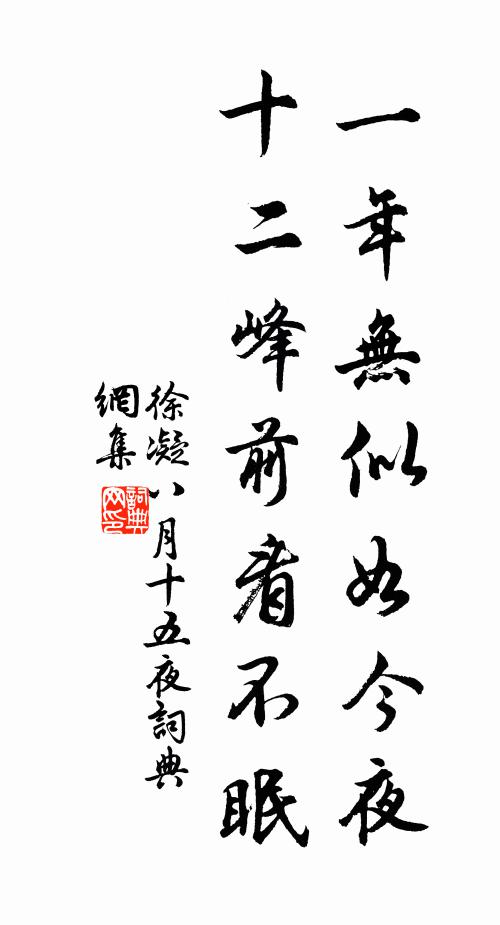 一年無似如今夜
十二峰前看不眠
徐凝八月十五夜詞典
網集
詞典
网印